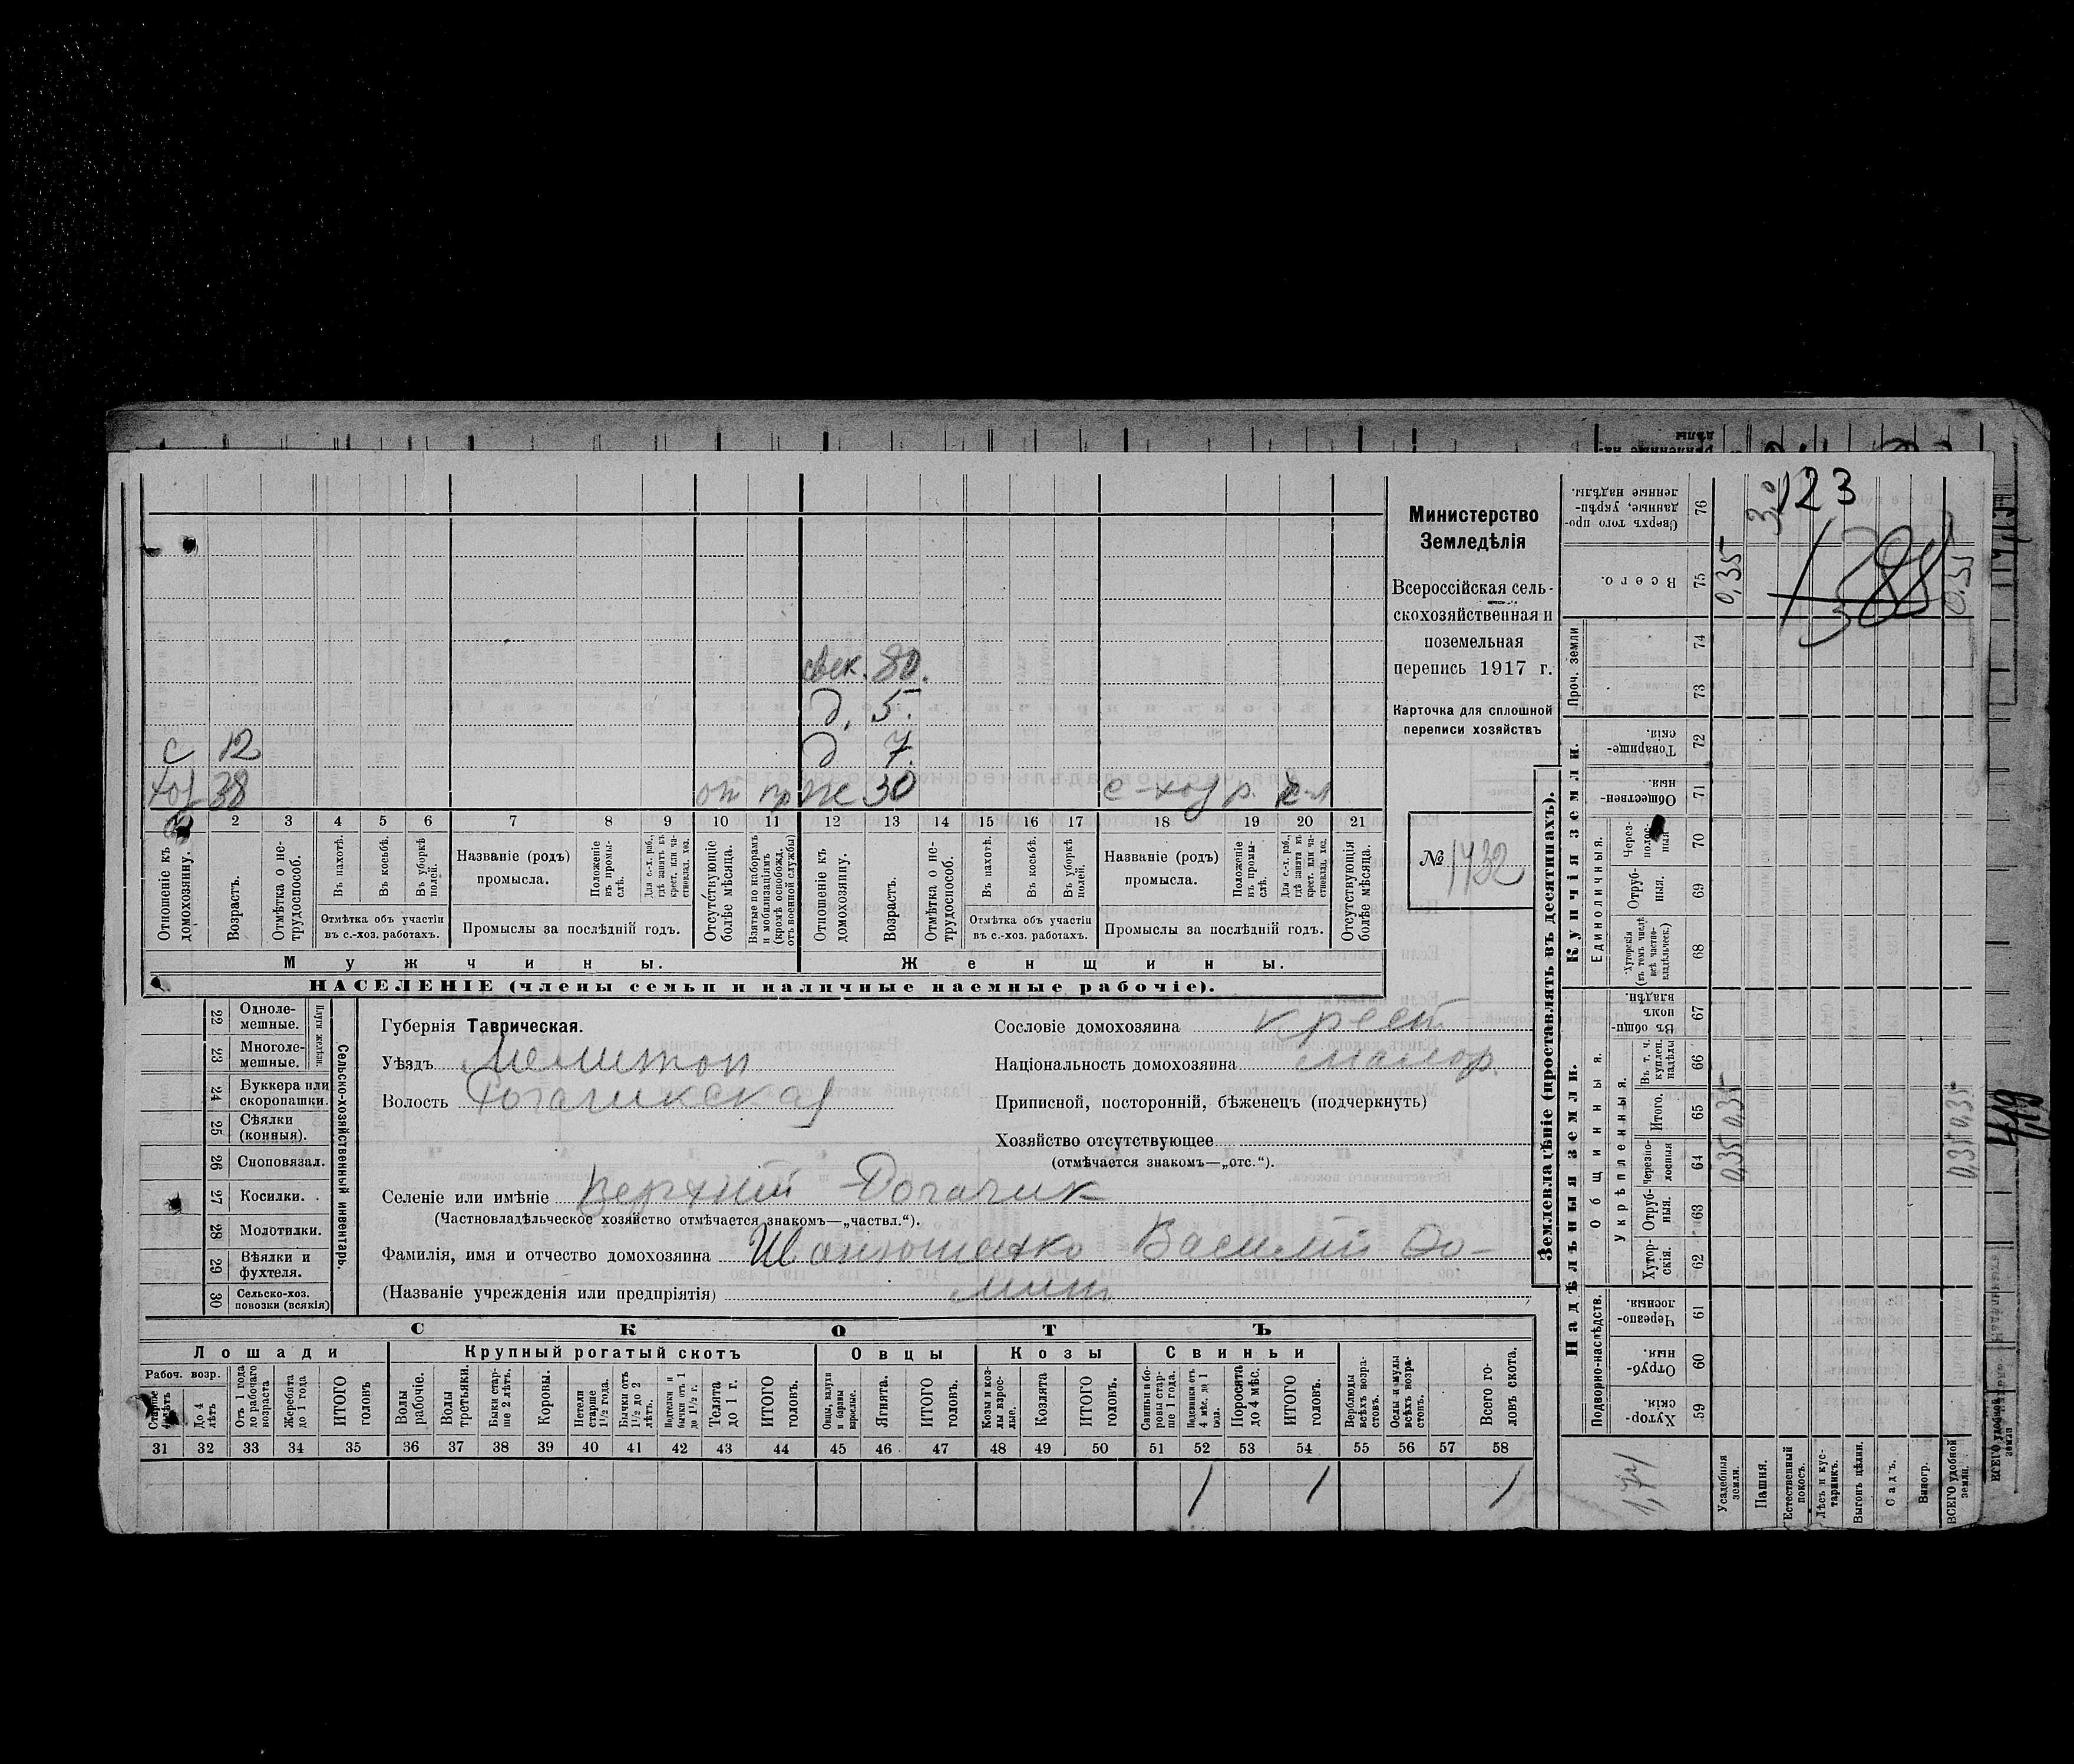 123
Министерство
Земледѣлія
Всероссійская сель-
скохозяйственная и
поземельная
перепись 1917 г.
Карточка для сплошной
переписи хозяйствъ
№ 1732
свек. 80.
д. 5.
с 12 д 7.
хоз 38 оп пр ж 30 с-хоз р.
1 2 3 4 5 6 7 8 9 10 11 12 13 14 15 16 17 18 19 20 21
Отношеніе къ домохозяину.
Возрастъ.
Отмѣтка о не-трудоспособ.
Въ пахотѣ.
Въ косьбѣ.
Въ уборкѣ полей.
Отмѣтка объ участіи въ с.-хоз. работахъ.
Названіе (родъ) промысла.
Положеніе въ промы-слѣ.
Для с.-х. раб., гдѣ занятъ къ крест. или ча-ствовлад. хоз.
Промыслы за послѣдній годъ.
Отсутствующіе болѣе мѣсяца.
Взятые по наборамъ и мобилизаціямъ (кромѣ освобожд. отъ военной службы)
Отношеніе къ домохозяину.
Возрастъ.
Отмѣтка о не-трудоспособ.
Въ пахотѣ.
Въ косьбѣ.
Въ уборкѣ полей.
Отмѣтка объ участіи въ с.-хоз. работахъ.
Названіе (родъ) промысла.
Положеніе въ промы-слѣ.
Для с.-х. раб., гдѣ занята къ крест. или ча-ствовлад. хоз.
Промыслы за послѣдній годъ.
Отсутствующія болѣе мѣсяца.
Мужчины. Женщины.
НАСЕЛЕНІЕ (члены семьи и наличные наемные рабочіе).
Сельско-хозяйственный инвентарь.
Плуги желѣзн.
22 Одноле-мешные.
23 Многоле-мешные.
24 Буккера или скоропашки.
25 Сѣялки (конныя).
26 Сноповязал.
27 Косилки.
28 Молотилки.
29 Вѣялки и фухтеля.
30 Сельско-хоз. повозки (всякія)
Губернія Таврическая.
Уѣздъ Мелитоп
Волость Рогачикская
Сословіе домохозяина крест
Національность домохозяина малор.
Приписной, посторонній, бѣженецъ (подчеркнуть)
Хозяйство отсутствующее
(отмѣчается знакомъ—„отс.“).
Селеніе или имѣніе Верхній Рогачик
(Частновладѣльческое хозяйство отмѣчается знакомъ—„частвл.“).
Фамилія, имя и отчество домохозяина Иванюшенко Василій До-
(Названіе учрежденія или предпріятія) мит
СКОТЪ
Лошади Крупный рогатый скотъ Овцы Козы Свиньи
Рабоч. возр.
Старше 4 лѣтъ
До 4 лѣтъ
Отъ 1 года до рабочаго возраста
Жеребята до 1 года
ИТОГО головъ
Волы рабочіе.
Волы третьяки.
Быки стар-ше 2 лѣтъ.
Коровы.
Нетели старше 1½ года.
Бычки отъ 1½ до 2 лѣтъ.
Водтелки и бычки отъ 1 до 1½ г.
Телята до 1 г.
ИТОГО головъ.
Овцы, валухи и бараны взрослые.
Ягнята.
ИТОГО головъ.
Козы и коз-лы взрос-лые.
Козлята
ИТОГО головъ.
Свиньи и бо-ровы стар-ше 1 года.
Подсвинки отъ 4 мѣс. до 1 года.
Поросята до 4 мѣс.
ИТОГО головъ.
Верблюды всѣхъ возра-стовъ.
Ослы и мулы всѣхъ возра-стовъ.
Всего го-ловъ скота.
31 32 33 34 35 36 37 38 39 40 41 42 43 44 45 46 47 48 49 50 51 52 53 54 55 56 57 58
1 1 1
Землевладѣніе (проставлять въ десятинахъ).
Надѣльныя земли. Купчія земли. Проч. земли
Подворно-наслѣдств.
Общинныя.
Укрѣпленныя.
Единоличныя.
59 Хутор-скія.
60 Отруб-ныя.
61 Черезпо-лосныя.
62 Хутор-скія.
63 Отруб-ныя.
64 Черезпо-лосныя
65 Итого.
66 Въ т. ч. куплен. надѣлы
67 Въ общи-номъ владѣн.
68 Хуторскія (въ томъ числѣ всѣ частно-владѣльческ.)
69 Отруб-ныя.
70 Через-полос-ныя
71 Обществен-ныя.
72 Товарище-скія.
73
74
75 Всего.
76 Сверхъ того про-данные, укрѣп-ленные надѣлы.
Усадебныя земли. 0,35 0,35 0,35
Пашня. 3,0
Естественный покосъ.
Лѣсъ и кус-тарникъ.
Выгонъ цѣлин.
Садъ.
Виногр.
ВСЕГО удобной земли. 0,35 0,35 0.35